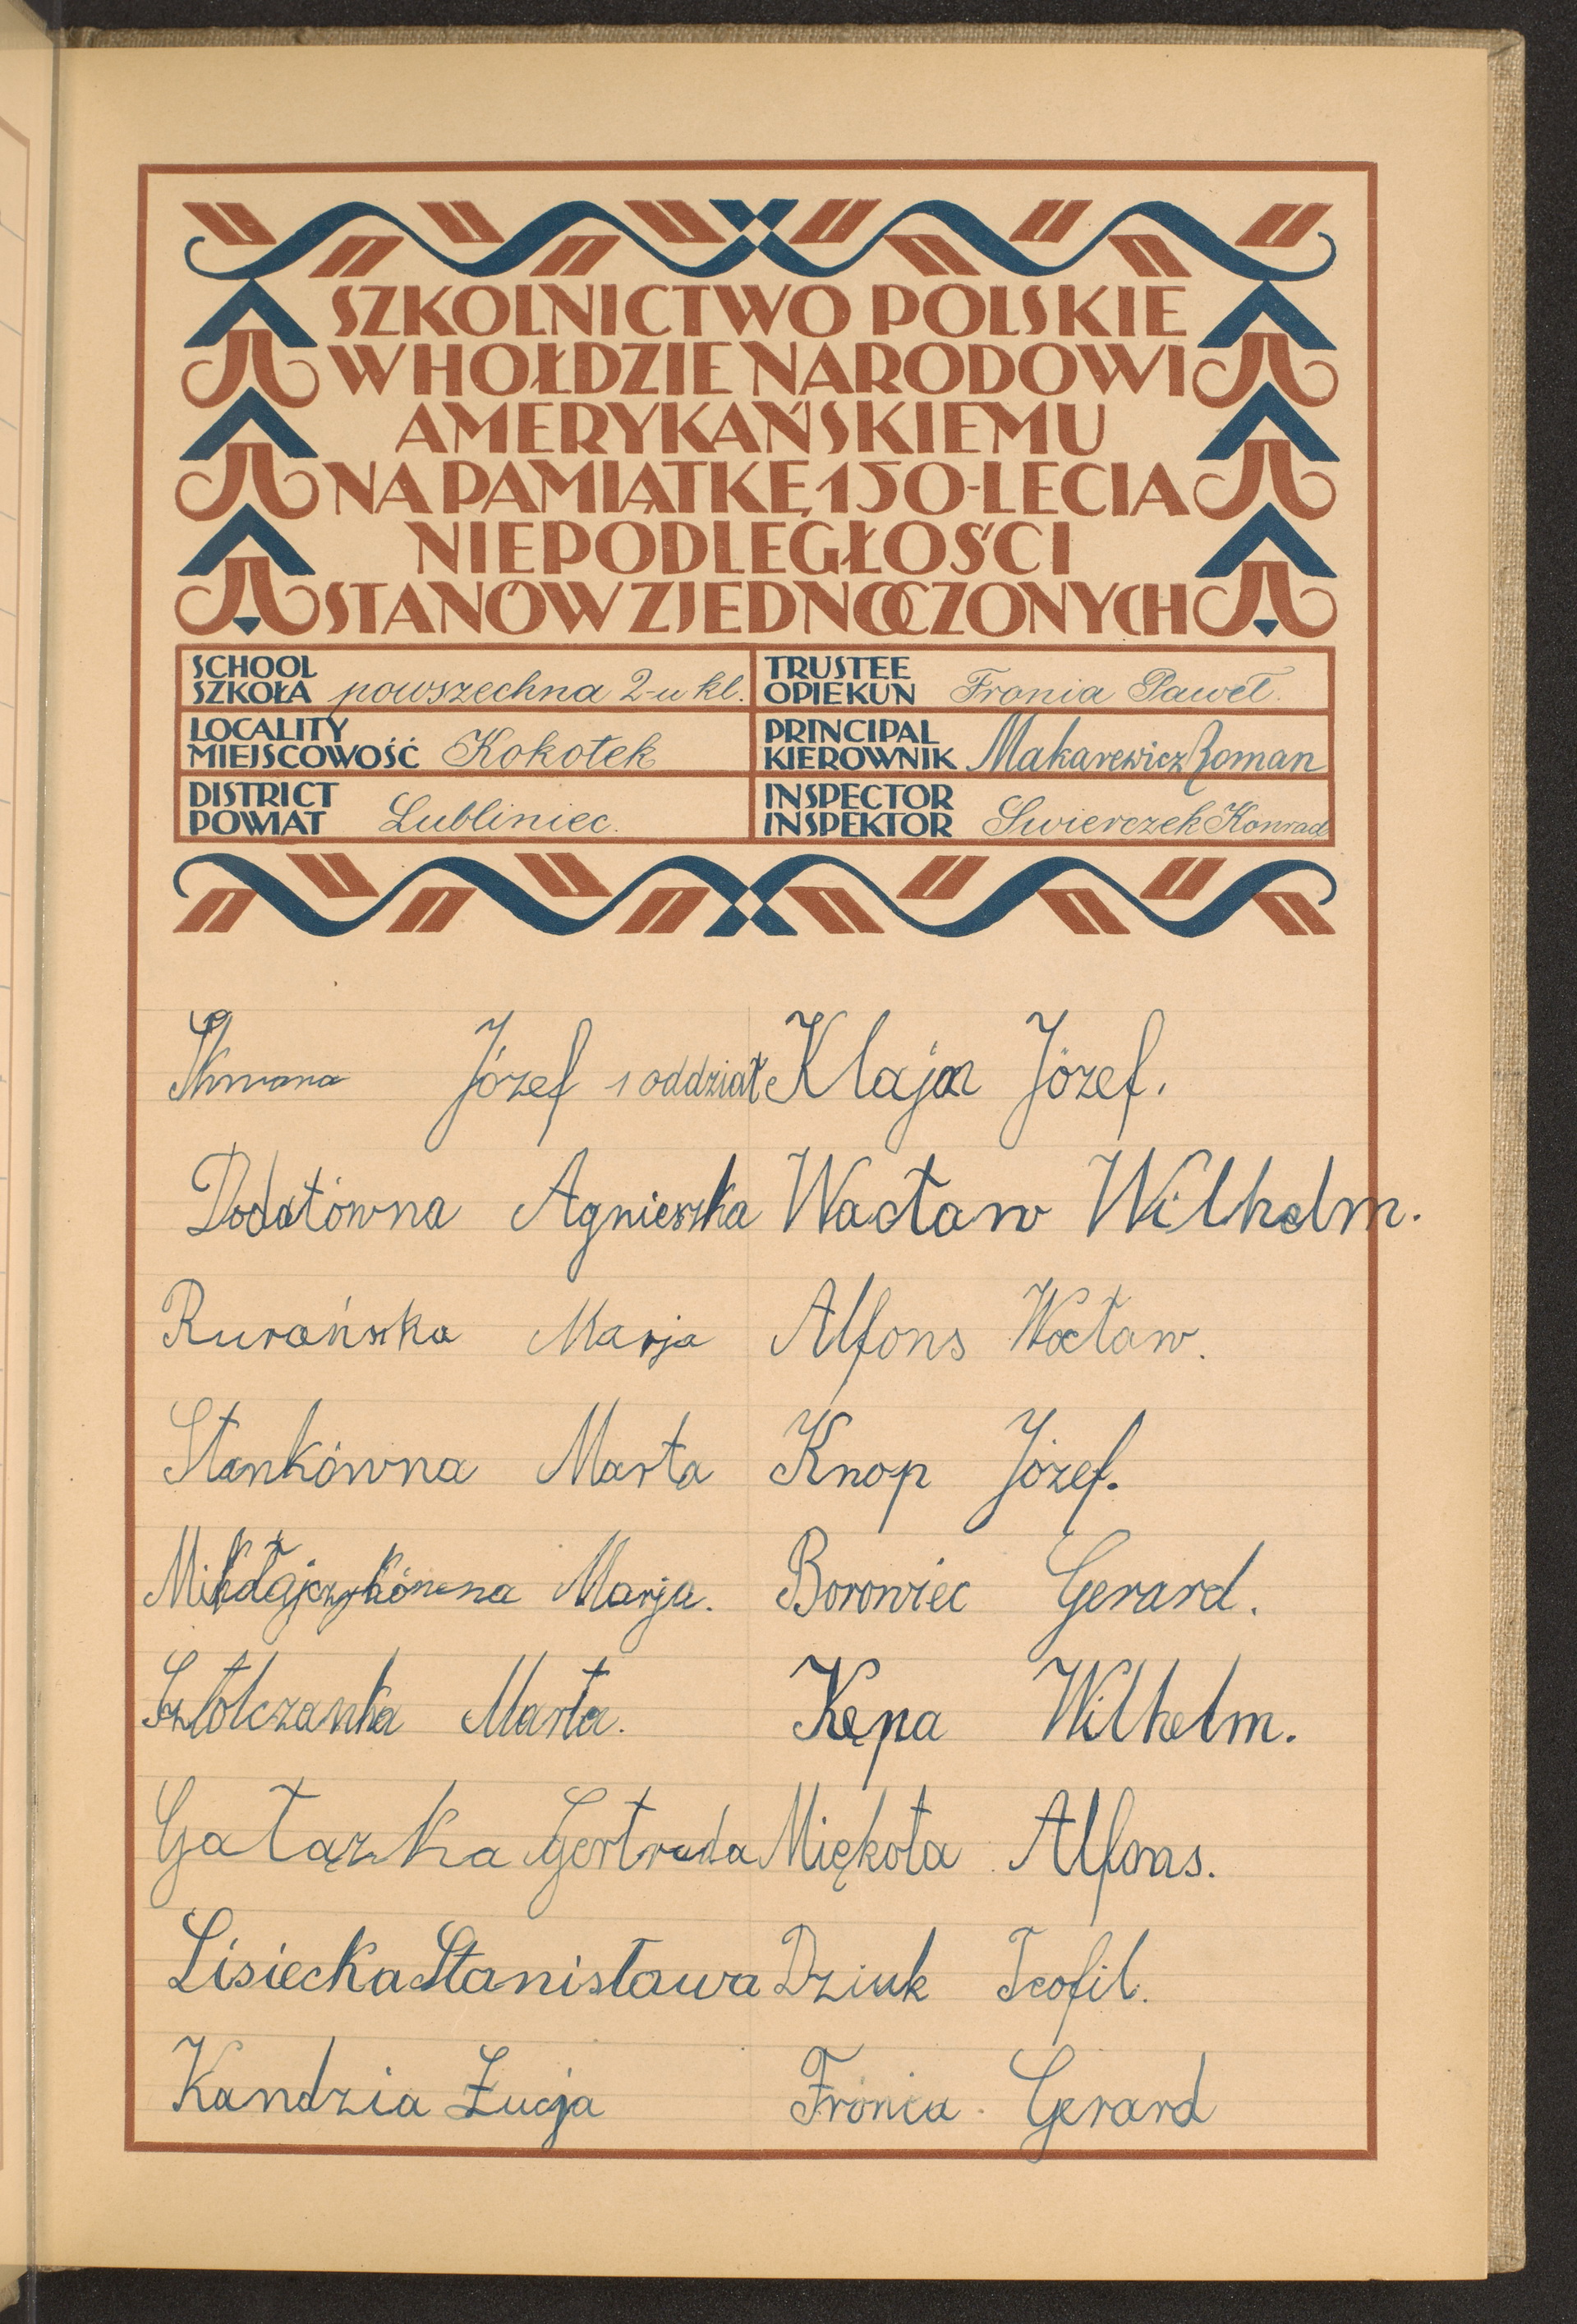 SZKOLNICTWO POLSKIE
W HOŁDZIE NARODOWI
AMERYKAŃSKIEMU
NA PAMIĄTKĘ 150-LECIA
NIEPODLEGŁOŚCI
STANÓW ZJEDNOCZONYCH
SCHOOL
SZKOŁA powszechna 2-u kl.
TRUSTEE
OPIEKUN Fronia Paweł.
LOCALITY
MIEJSCOWOŚĆ Kokotek
PRINCIPAL
KIEROWNIK Makarewicz Roman
DISTRICT
POWIAT Lubliniec.
INSPECTOR
INSPEKTOR Swierczek Konrad
Józef 1 oddział Klaja Józef.
Dodatówna Agnieszka Wacław Wilhelm.
Rurańska Marja Alfons Wacław.
Stankówna Marta Knop Józef.
Mikołajczykówna Marja. Borowiec Gerard.
Sztolczanka Marta. Kępa Wilhelm.
Gałązka Gertruda Miękota Alfons.
Lisiecka Stanisława Dziuk Teofil.
Kandzia Łucja Fronia Gerard